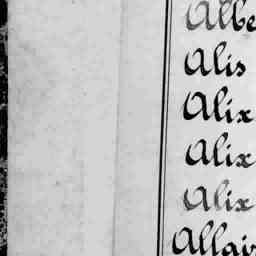 Albe
Alis
Alix
Alix
Alix
Allair